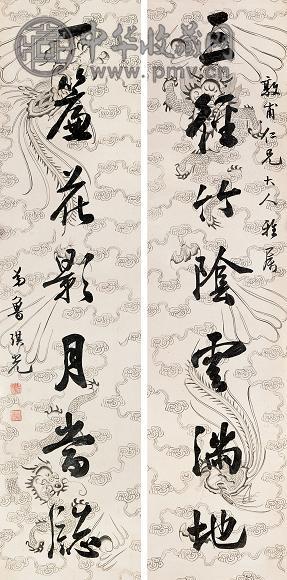 中华收藏网
www.pmv.cn
敦甫仁兄大人雅屬
三徑竹陰雲滿地
一簾花影月當牕
弟魯琪光